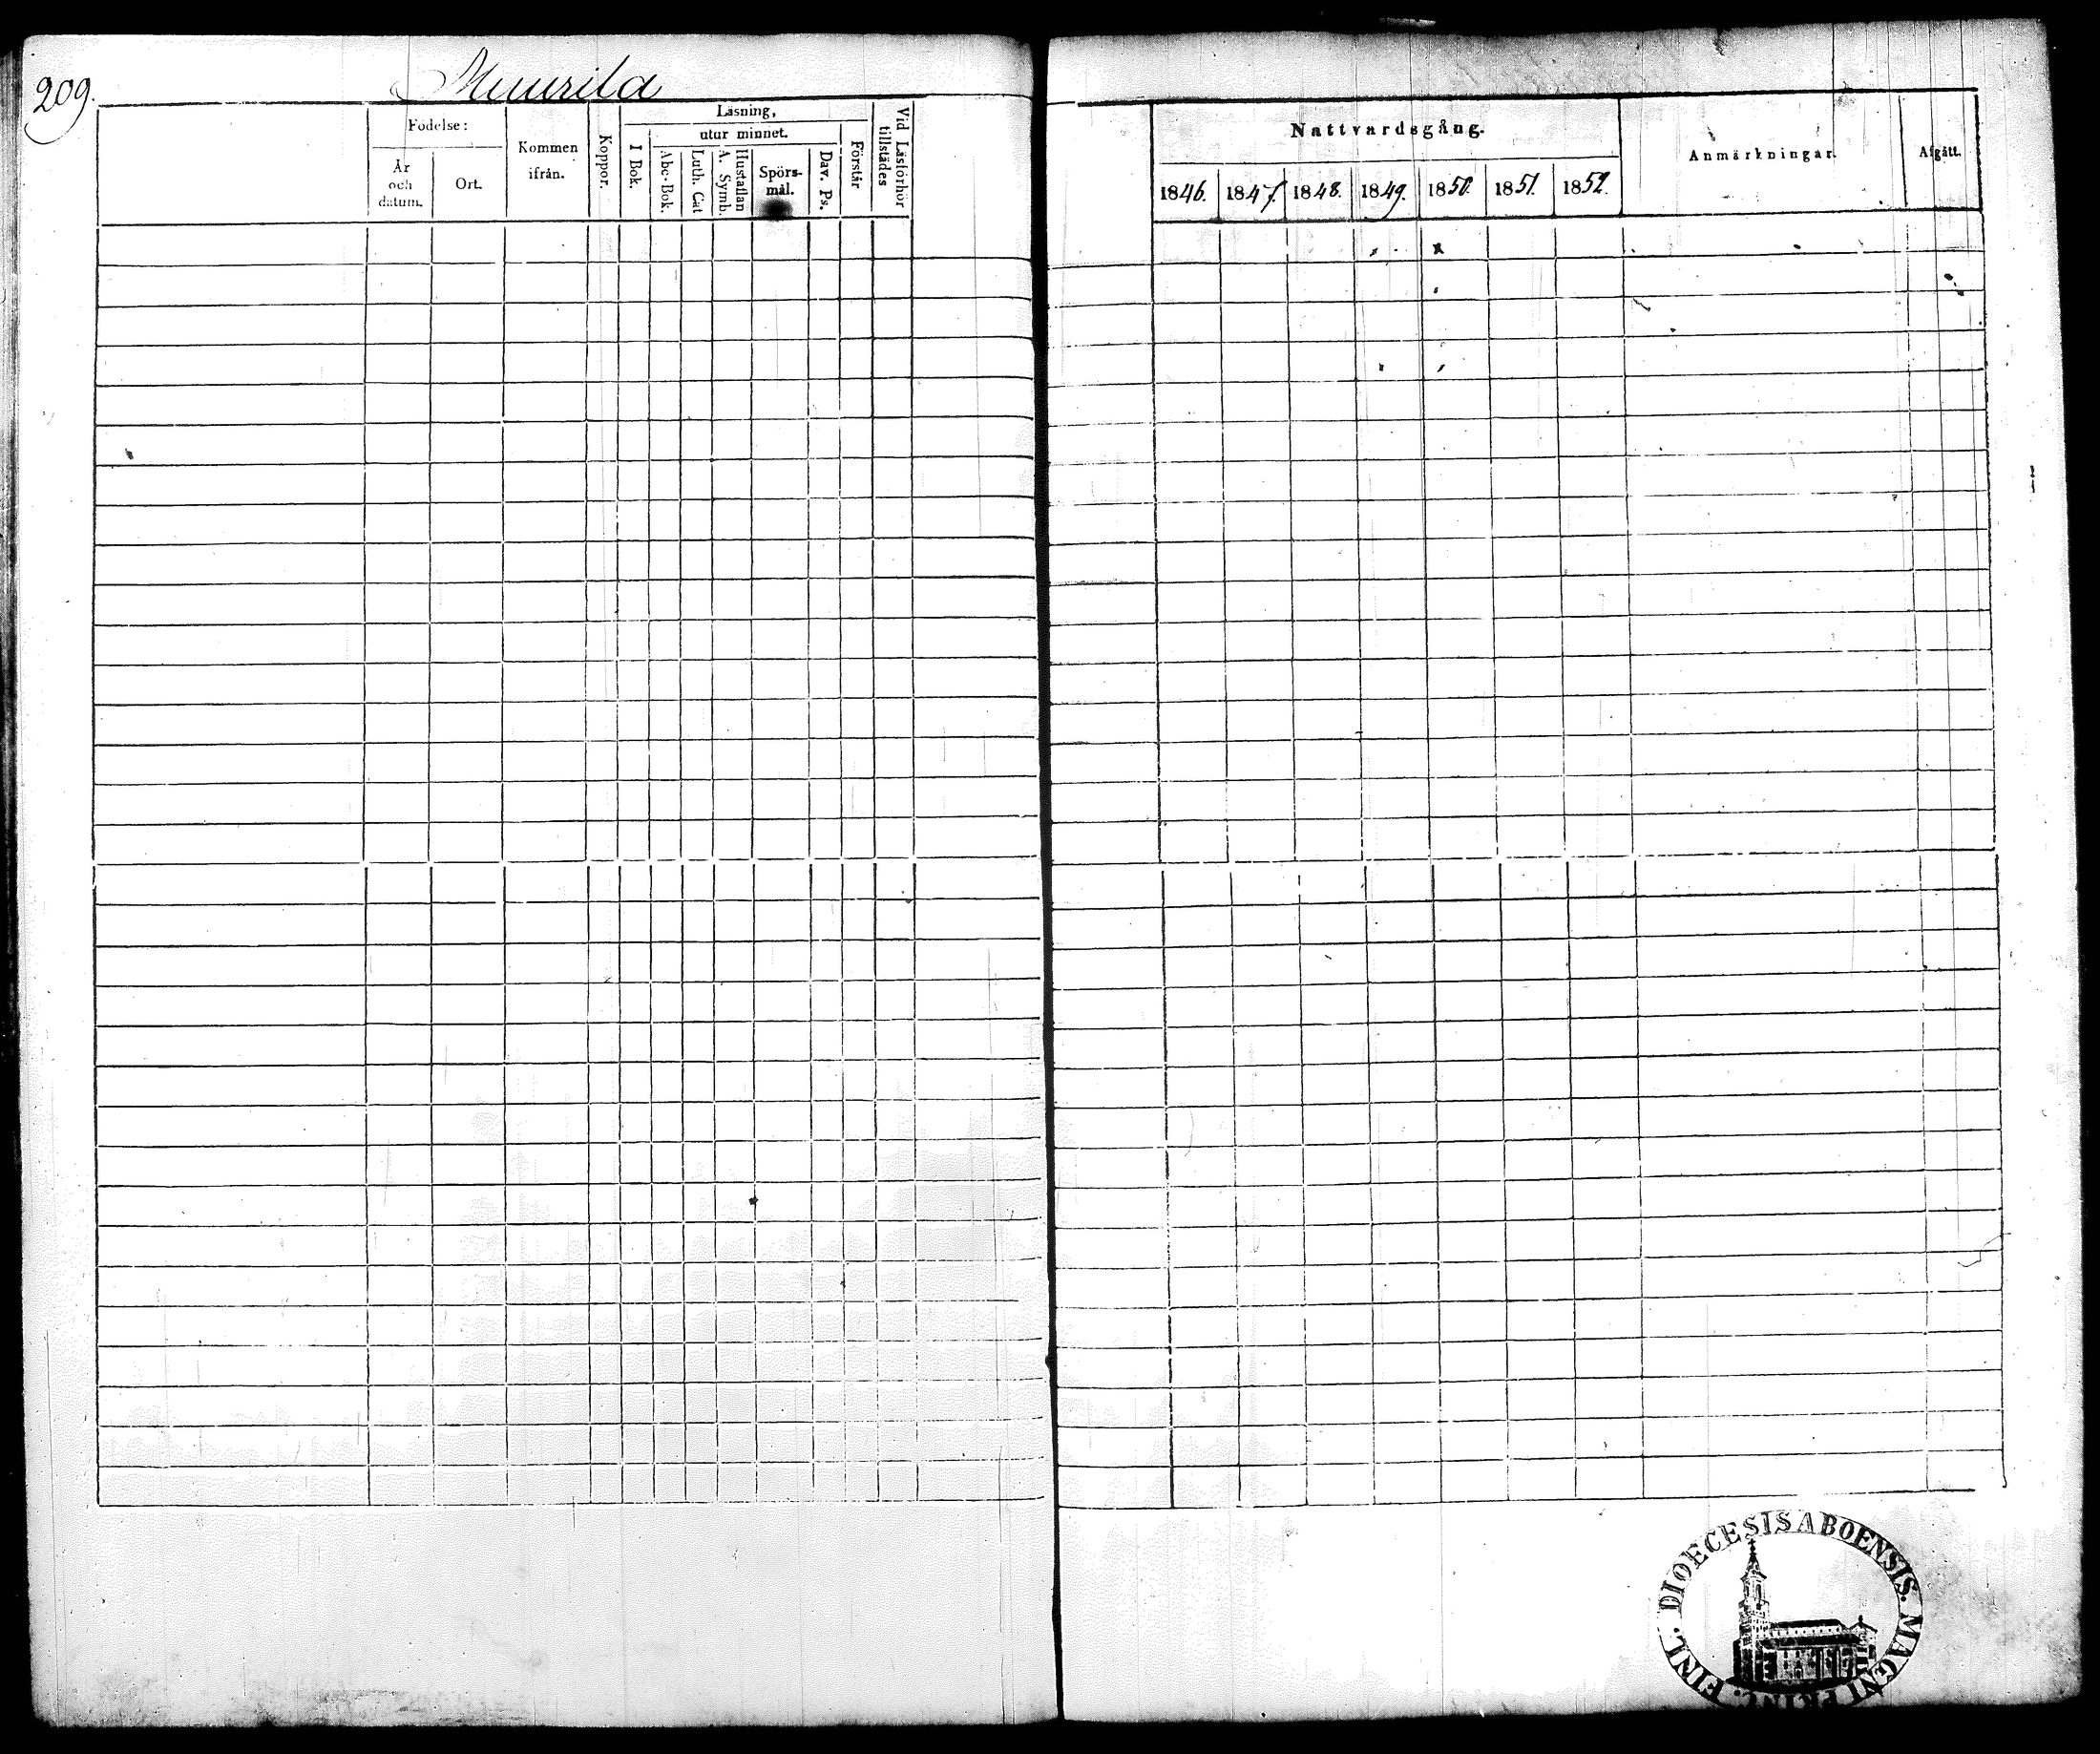 209.
Muurila
Födelse:
År
och
datum.
Ort.
Kommen
ifrån.
Koppor.
Läsning,
I Bok.
utur minnet.
Abc-Bok.
Luth. Cat
Hustaflan
A. Symb.
Spörs-
mål.
Dav. Ps.
Förstår
Vid Läsförhör
tillstädes
Nattvardsgång.
1846. 1847. 1848. 1849. 1850. 1851. 1852.
Anmärkningar.
Afgått.
DIOECESIS ABOENSIS. MAGNI PRINC. FINL.